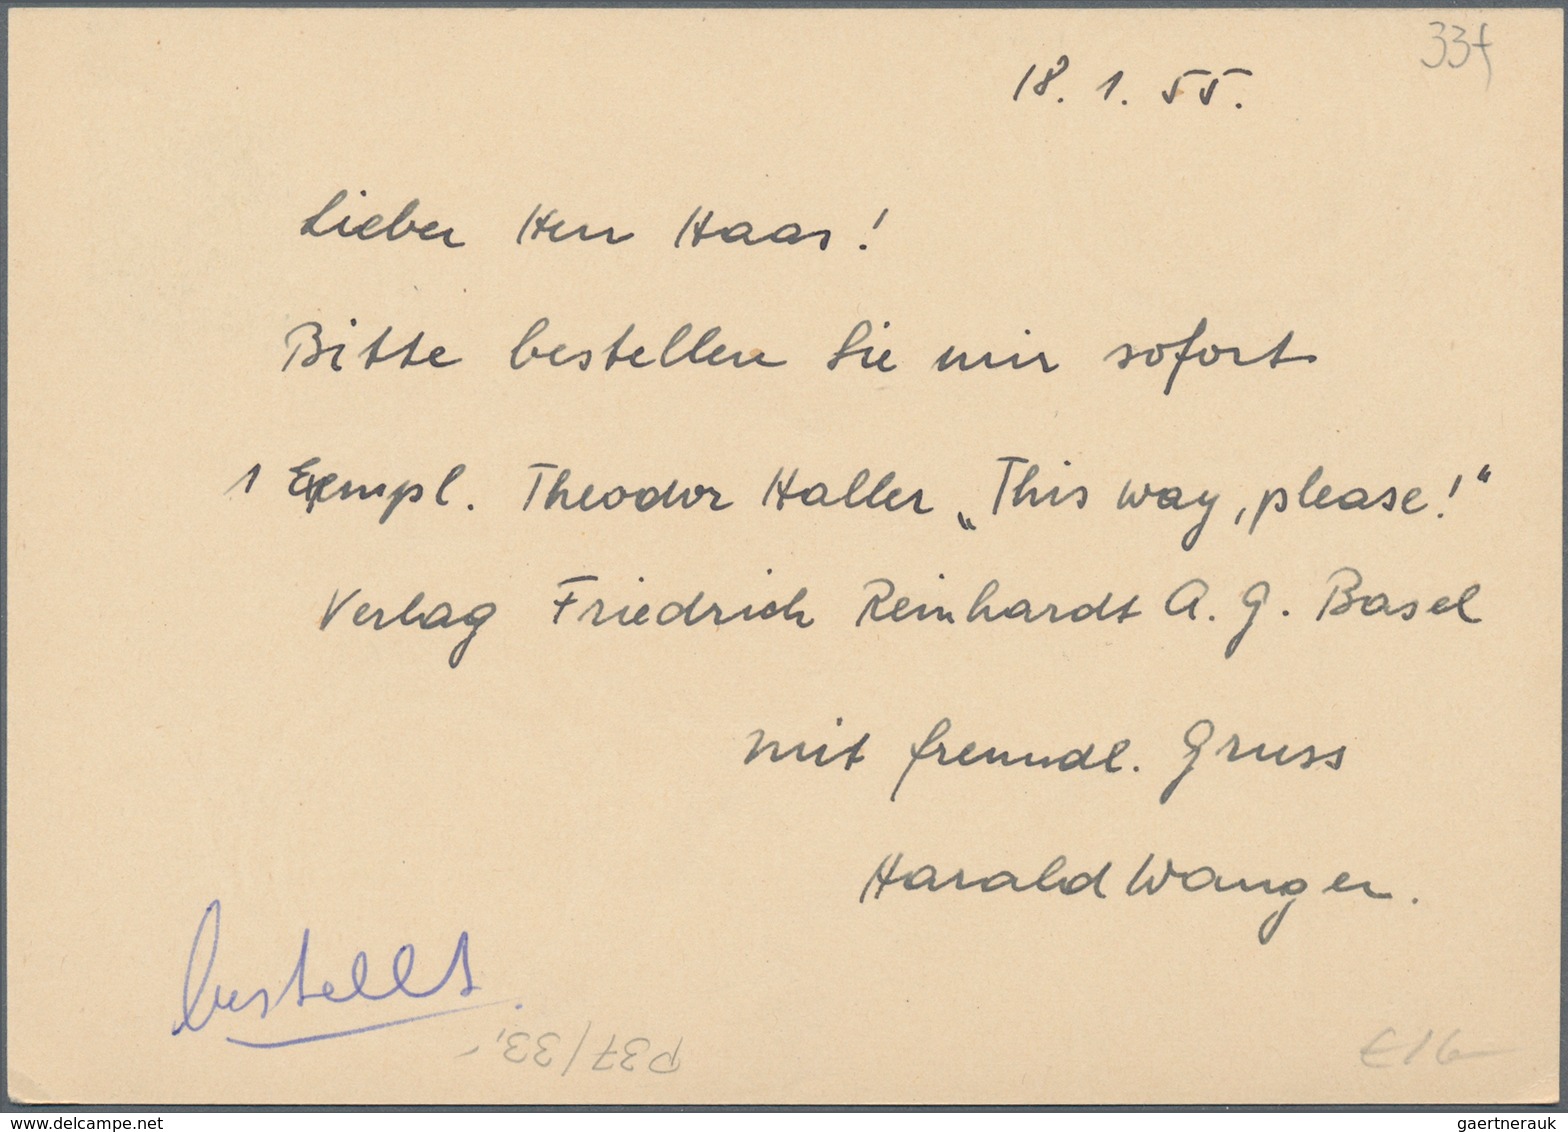 33f
18. 1. 55.
Lieber Herr Haas!
Bitte bestellen Sie mir sofort
1 Exempl. Theodor Haller „This way, please!“
Verlag Friedrich Reinhardt A. G. Basel
mit freundl. Gruss
Harald Wanger.
bestellt
P37/33,-
€16-
www.delcampe.net
gaertnerauk